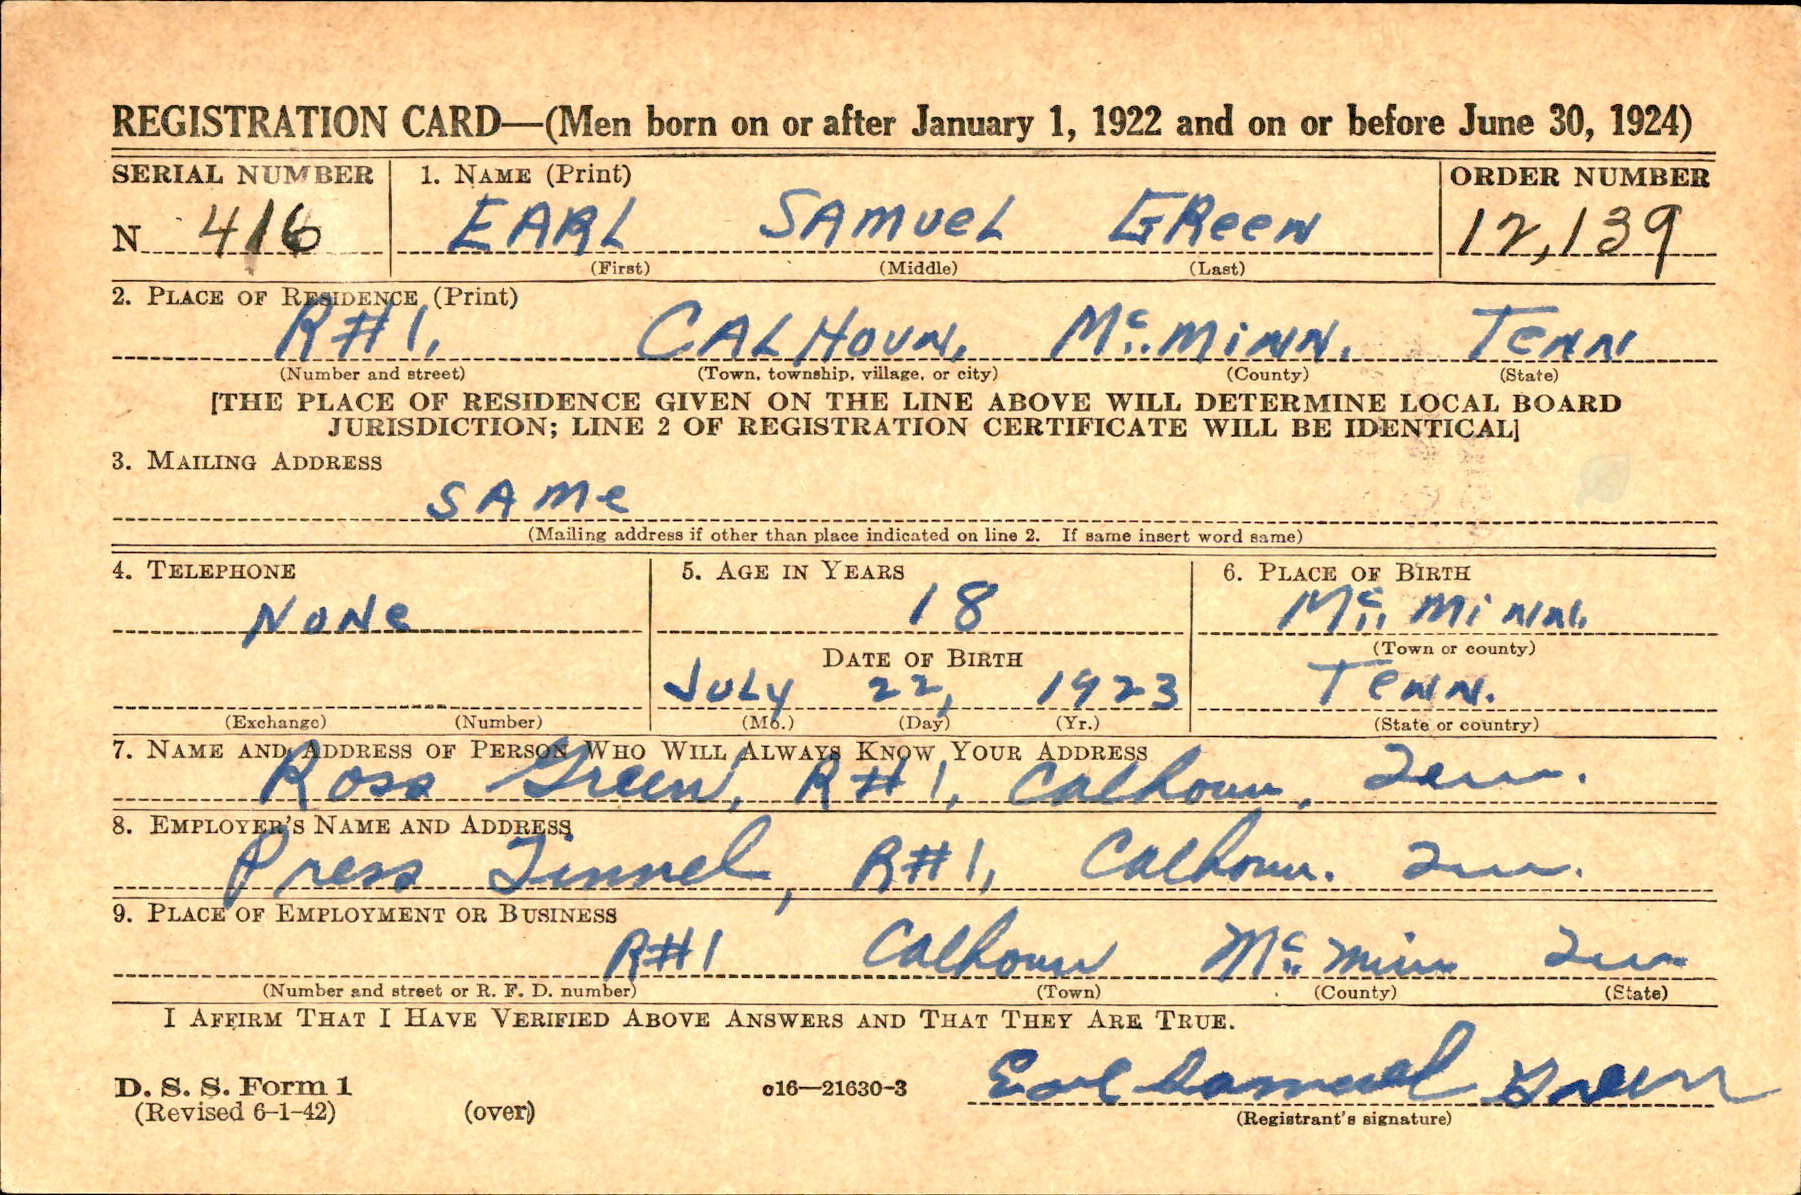 REGISTRATION CARD—(Men born on or after January 1, 1922 and on or before June 30, 1924)
SERIAL NUMBER 1. NAME (Print) ORDER NUMBER
N 416 EARL SAMUEL GReen 12,139
(First) (Middle) (Last)
2. PLACE OF RESIDENCE (Print)
R#1, CALHOUN, Mc.MiNN. TeNN
(Number and street) (Town, township, village, or city) (County) (State)
[THE PLACE OF RESIDENCE GIVEN ON THE LINE ABOVE WILL DETERMINE LOCAL BOARD
JURISDICTION; LINE 2 OF REGISTRATION CERTIFICATE WILL BE IDENTICAL]
3. MAILING ADDRESS
SAMe
(Mailing address if other than place indicated on line 2. If same insert word same)
4. TELEPHONE 5. AGE IN YEARS 6. PLACE OF BIRTH
NONe 18 Mc. MiNN.
(Town or county)
DATE OF BIRTH
JULY 22, 1923 TeNN.
(Exchange) (Number) (Mo.) (Day) (Yr.) (State or country)
7. NAME AND ADDRESS OF PERSON WHO WILL ALWAYS KNOW YOUR ADDRESS
Ross Green, R#1, Calhoun, Tenn.
8. EMPLOYER'S NAME AND ADDRESS
Press R#1, Calhoun. Tenn.
9. PLACE OF EMPLOYMENT OR BUSINESS
R#1 Calhoun Mc. Minn Tenn
(Number and street or R. F. D. number) (Town) (County) (State)
I AFFIRM THAT I HAVE VERIFIED ABOVE ANSWERS AND THAT THEY ARE TRUE.
D. S. S. Form 1 c16—21630-3 Earl Samuel Green
(Revised 6-1-42) (over) (Registrant's signature)